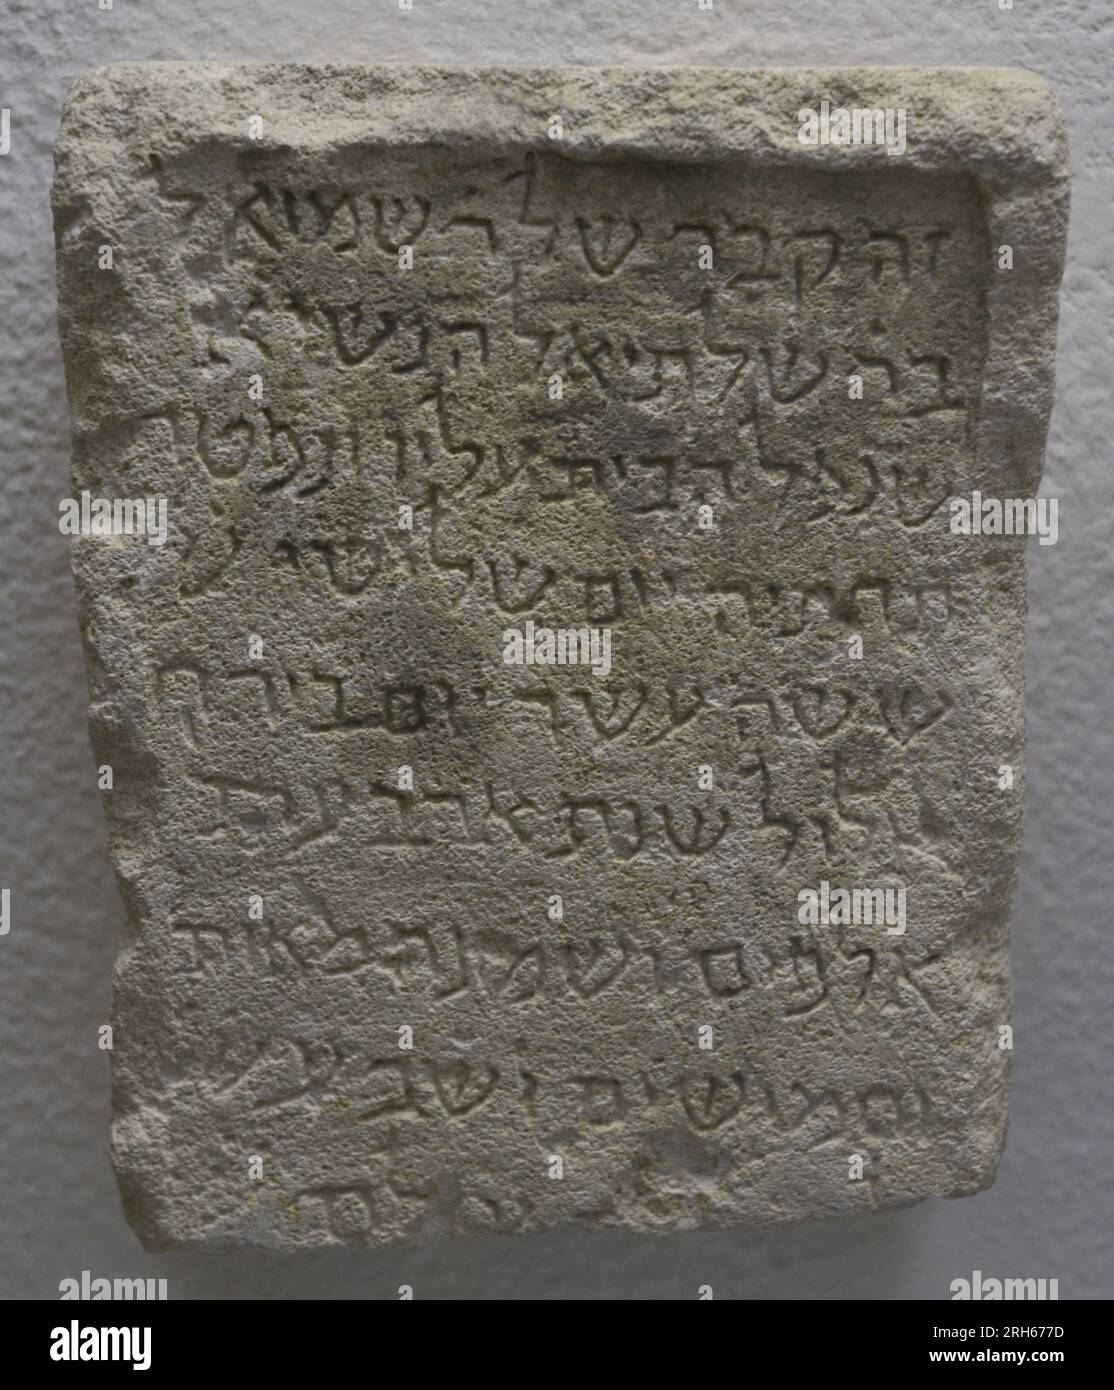 זה קבר של ר שמואל
בר שלתיאל הנשיא
שנפל הבית עליו ונפטר
תחתיה יום שלישי
ששה עשר יום בירח
אלול שנת ארבעת
אלפים ושמנה מאות
וחמושים ושבע
alamy
Image ID: 2RH677D
www.alamy.com